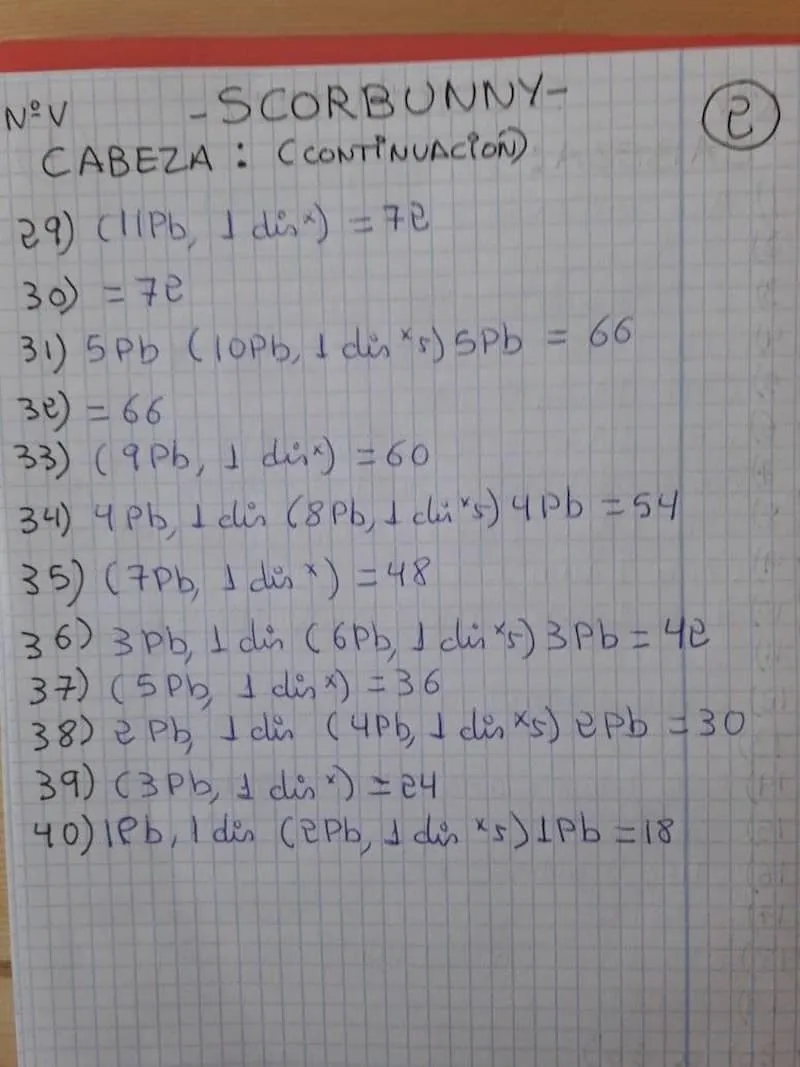 NºV -SCORBUNNY- 2
CABEZA: (CONTINUACIÓN)
29) (11Pb, 1 dis x) = 72
30) = 72
31) 5Pb (10Pb, 1 dis x5) 5Pb = 66
32) = 66
33) (9Pb, 1 dis x) = 60
34) 4Pb, 1 dis (8Pb, 1 dis x5) 4Pb = 54
35) (7Pb, 1 dis x) = 48
36) 3Pb, 1 dis (6Pb, 1 dis x5) 3Pb = 42
37) (5Pb, 1 dis x) = 36
38) 2Pb, 1 dis (4Pb, 1 dis x5) 2Pb = 30
39) (3Pb, 1 dis x) = 24
40) 1Pb, 1 dis (2Pb, 1 dis x5) 1Pb = 18